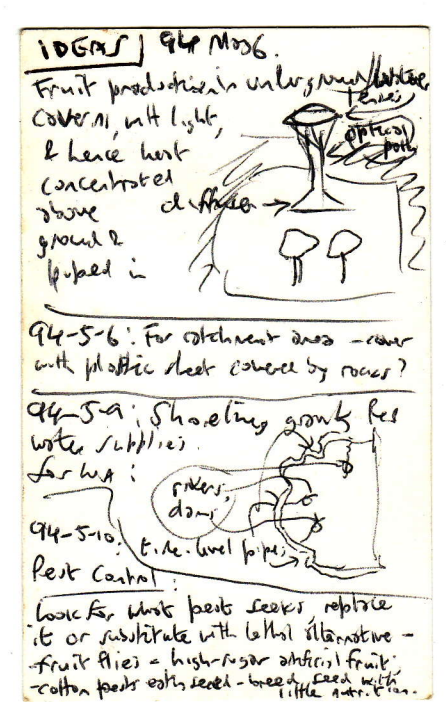 IDEAS 94 May 6.
Fruit production in underground
caverns, with light,
& hence heat
concentrated
above
ground &
piped in
lenses
optical
path
diffuser →
94-5-6: For catchment area - cover
with plastic sheet covered by rocks?
94-5-9: Shoreline grants for
water supplies
for WA:
rivers,
dams
tide-level pipes
94-5-10:
Pest Control:
Look for what pests seeks, replace
it or substitute with lethal alternative -
- fruit flies = high-sugar artificial fruit,
- cotton pests eat seed - breed seed with
little nutrition.